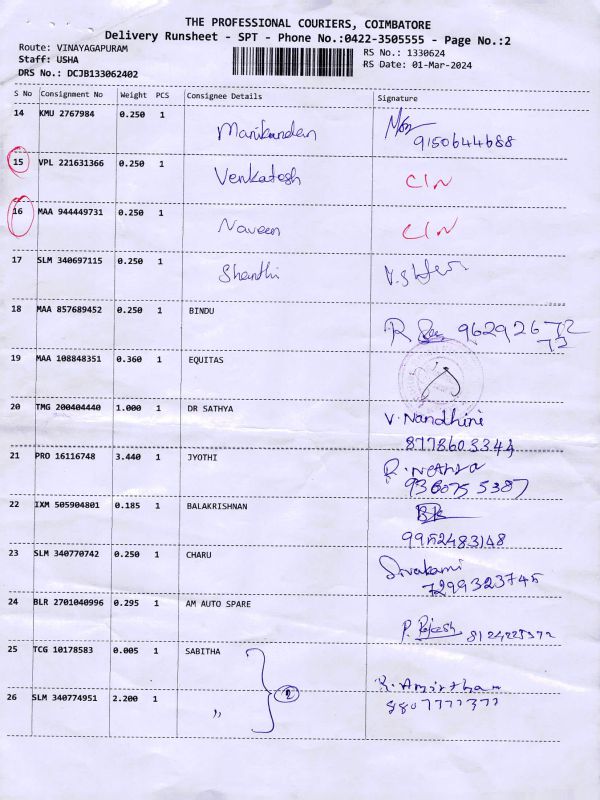 THE PROFESSIONAL COURIERS, COIMBATORE
Delivery Runsheet - SPT - Phone No.:0422-3505555 - Page No.:2
Route: VINAYAGAPURAM
RS No.: 1330624
Staff: USHA
RS Date: 01-Mar-2024
DRS No.: DCJB133062402
S No Consignment No Weight PCS Consignee Details Signature
14 KMU 2767984 0.250 1 Manikandan
9150644688
15 VPL 221631366 0.250 1 Venkatesh CIN
16 MAA 944449731 0.250 1 Naveen CIN
17 SLM 340697115 0.250 1 Shanthi
18 MAA 857689452 0.250 1 BINDU R 96292672
72
19 MAA 108848351 0.360 1 EQUITAS
20 TMG 200404440 1.000 1 DR SATHYA V. Nandhini
8778603344
21 PRO 16116748 3.440 1 JYOTHI R. Nethra
936075 5387
22 IXM 505904801 0.185 1 BALAKRISHNAN BK
9952483148
23 SLM 340770742 0.250 1 CHARU Sivakami
7299323745
24 BLR 2701040996 0.295 1 AM AUTO SPARE P. Rajesh
25 TCG 10178583 0.005 1 SABITHA K. Amirtham
8807777377
26 SLM 340774951 2.200 1 " 2